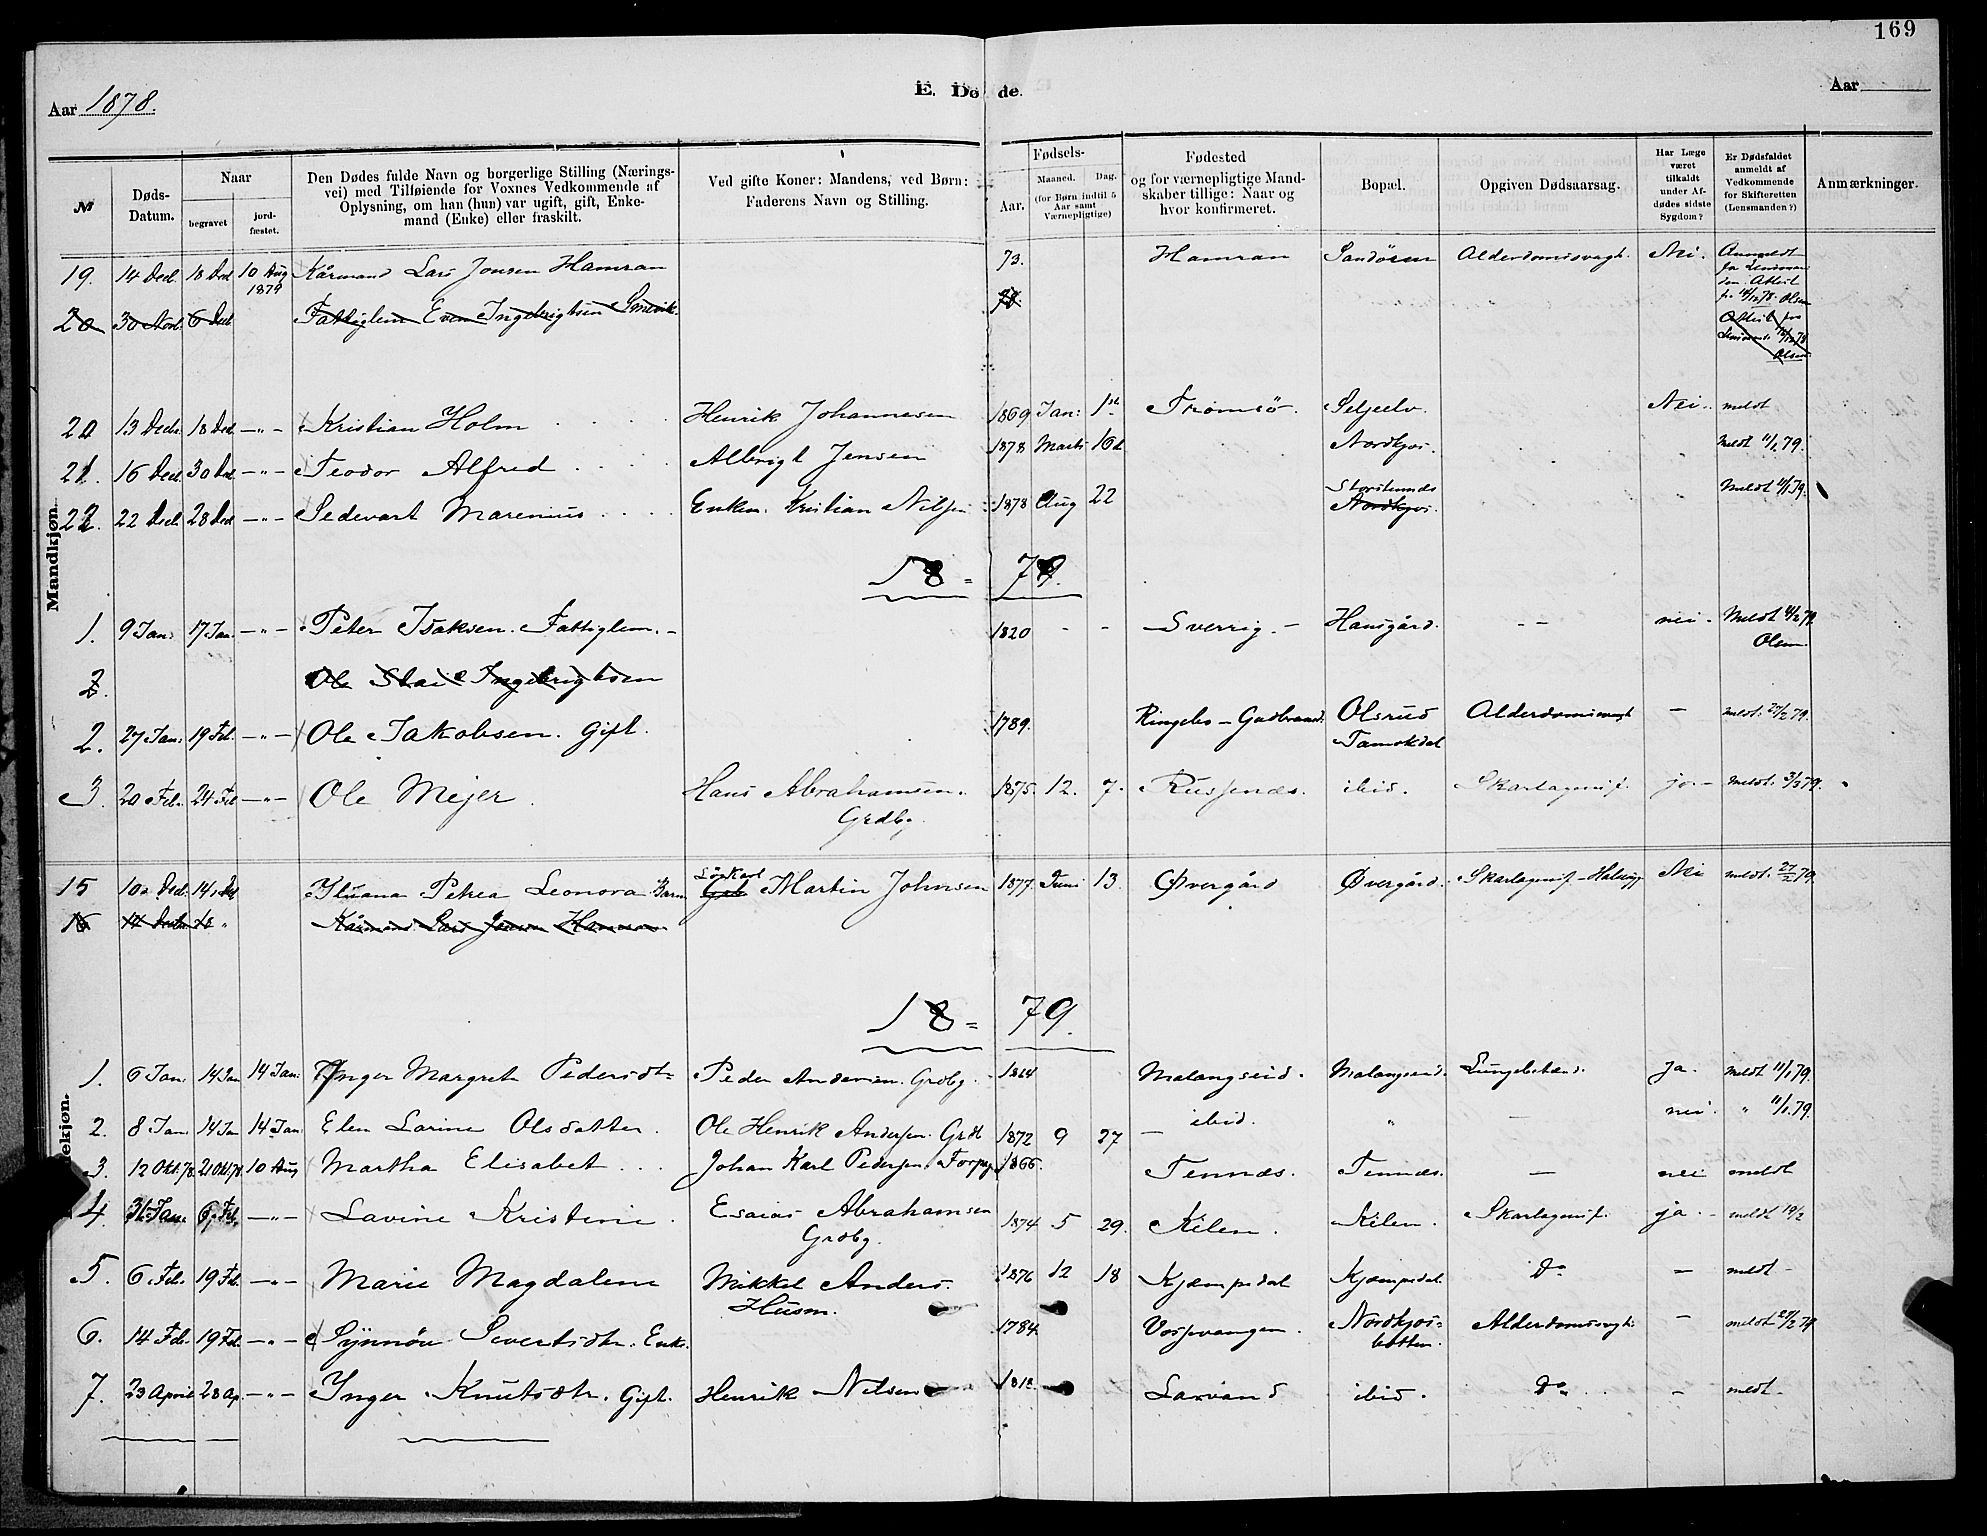 169
Aar 1878.
E. Dø de.
Aar
№
Døds-Datum.
Naar
begravet
jord-fæstet.
Den Dødes fulde Navn og borgerlige Stilling (Nærings-
vei) med Tilføiende for Voxnes Vedkommende af
Oplysning, om han (hun) var ugift, gift, Enke-
mand (Enke) eller fraskilt.
Ved gifte Koner: Mandens, ved Børn:
Faderens Navn og Stilling.
Fødsels-
Aar.
Maaned.
Dag.
(for Børn indtil 5
Aar samt
Værnepligtige)
Fødested
og for værnepligtige Mand-
skaber tillige: Naar og
hvor konfirmeret.
Bopæl.
Opgiven Dødsaarsag.
Har Læge
været
tilkaldt
under Af-
dødes sidste
Sygdom?
Er Dødsfaldet
anmeldt af
Vedkommende
for Skifteretten
(Lensmanden?)
Anmærkninger.
Mandkjøn.
19. 14 Decl 18 Decl 10 Aug 1879 Kårmand Lars Jonsen Hamran 73. Hamran Sandören Alderdomssvagh. Nei. Anmeldt
20 30 Novb. 6 Decl Fattiglem Even Ingebrigtsen
20 13 Decbr. 18 Decl -"- Kristian Holm Henrik Johannesen 1869 Jan: 1st Tromsö. Seljeelv. Nei. meldt
21. 16 Decl 30 Decl -"- Teodor Alfred Albrigt Jensen 1878 Marts 16d Nordkjos. Meldt 11/1 79.
22. 22 Decl. 28 Decl -"- Sedevart Marenius Enkem. Kristian Nilsen 1878 Aug 22 Nordkjos. Meldt 11/1 79.
18 = 79.
1. 9 Jan: 17 Jan. -"- Peter Isaksen. Fattiglem. 1820 - - Sverrig. Hansgård. - - nei. Meldt Olsen
2. Ole Ingebrigtsen
2. 27 Jan: 19 Feb. -"- Ole Jakobsen. Gift. 1789. Ringebo - Gudbrand. Olsrud Tamokdal Alderdomssvagh - meldt. 27/2 79.
3. 20 Feb. 24 Feb -"- Ole Mejer. Hans Abrahamsen. Grdbg. 1875. 12. 7. Russenæs. ibid. Skarlagensf. ja. - Meldt. 3/3 79.
15 10. Decl. 14. Decl Petrea Leonora Barn Martin Johnsen 1877. Juni 13. Øvergård Øvergård. Skarlagensf - Nei meldt. 27/2 79.
16 14 Decbr 18 " Kårmand Lars Jonsen Hamran
18 = 79.
1. 6 Jan: 14 Jan 14 Jan: Inger Margrete Pedersdtr Peder Andersen. Grdbg. Malangseid. Malangseid. Lungebetænd. Ja. meldt 11/1 79.
2. 8 Jan 14 Jan 14 Jan. Elen Larine Olsdatter. Ole Henrik Andersen. Grdb 1872 9 27 - ibid. " - nei. " 11/1 79.
3. 12 Okt. 78. 21 Okt. 78 10 Aug Martha Elisabet Johan Karl Pedersen. 1866. Tennæs. Tennæs. - nei meldt
4. 31 Jan. 6 Feb. -"- Lavine Kristine. Esaias Abrahamsen Grdbg. 1874 5 29. Kilen. Kilen. Skarlagensf. ja. - meldt 10/2
5. 6 Feb. 19 Feb. -"- Marie Magdalene Mikkel Anders. Husm. 1876 12 18 Kjæmpedal Kjæmpedal Do - meldt -
6. 14 Feb. 19 Feb. -"- Synnöve Severtsdtr. Enke. 1784 Vossevangen. Nordkjos-botten. Alderdomssvagh - meldt 27/2 79
7. 23 April 28 Ap. -"- Inger Knutsdtr. Gift. Henrik Nilsen Larvand ibid. Do. - meldt.